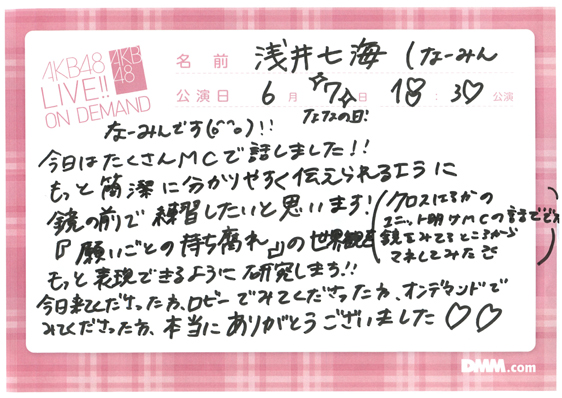 AKB48
LIVE!!
ON DEMAND
AKB
48
名前 浅井七海 (なーみん
公演日 6月7日 18:30公演
ななの日!
なーみんです(^^)!!
今日はたくさんMCで話しました!!
もっと簡潔に分かりやすく伝えられるように
鏡の前で練習したいと思います!
『願いごとの持ち腐れ』の世界観を
もっと表現できるように研究します!!
今日来てくださった方、ロビーでみてくださった方、オンデマンドで
みてくださった方、本当にありがとうございました♡♡
ユニット明けMCの話です
鏡をみてるところから
DMM.com